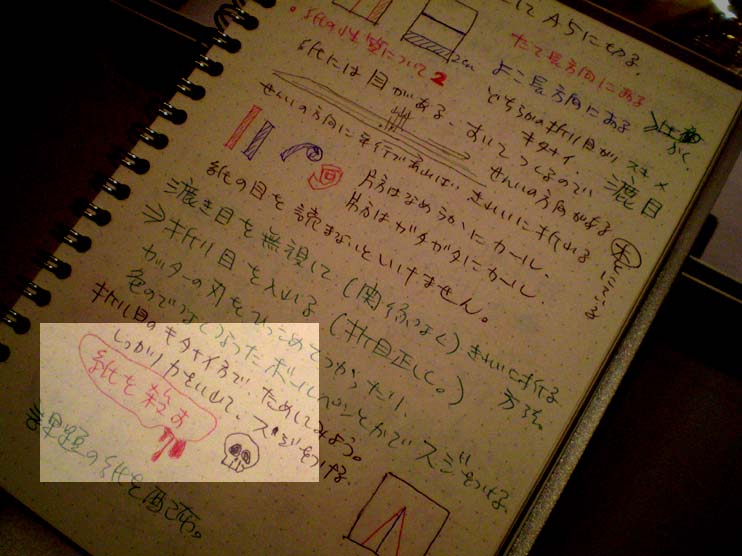 にしてA5に切る。
2cm
・紙の性質について2
たて長方向にある
よこ長方向にある
紙には目がある。
どちらかの折り目が
キタナイ。
漉目
すいてつくるので
せんいの方向がある
せんいの方向に平行であれば、きれいに折れる
片方はなめらかにカール、
片方はガタガタにカール。
紙の目を読まないといけません。
漉き目を無視して(関係なく)きれいに折る
方法。
⇒折り目を入れる(折目正しく。)
カッターの刃をひっこめてつかったり、
色のでなくなったボールペンとかでスジをつける。
折り目のキタナイ方で、ためしてみよう。
しっかり力を出して、スジをつける。
紙を殺す
課題の紙を配る。
木